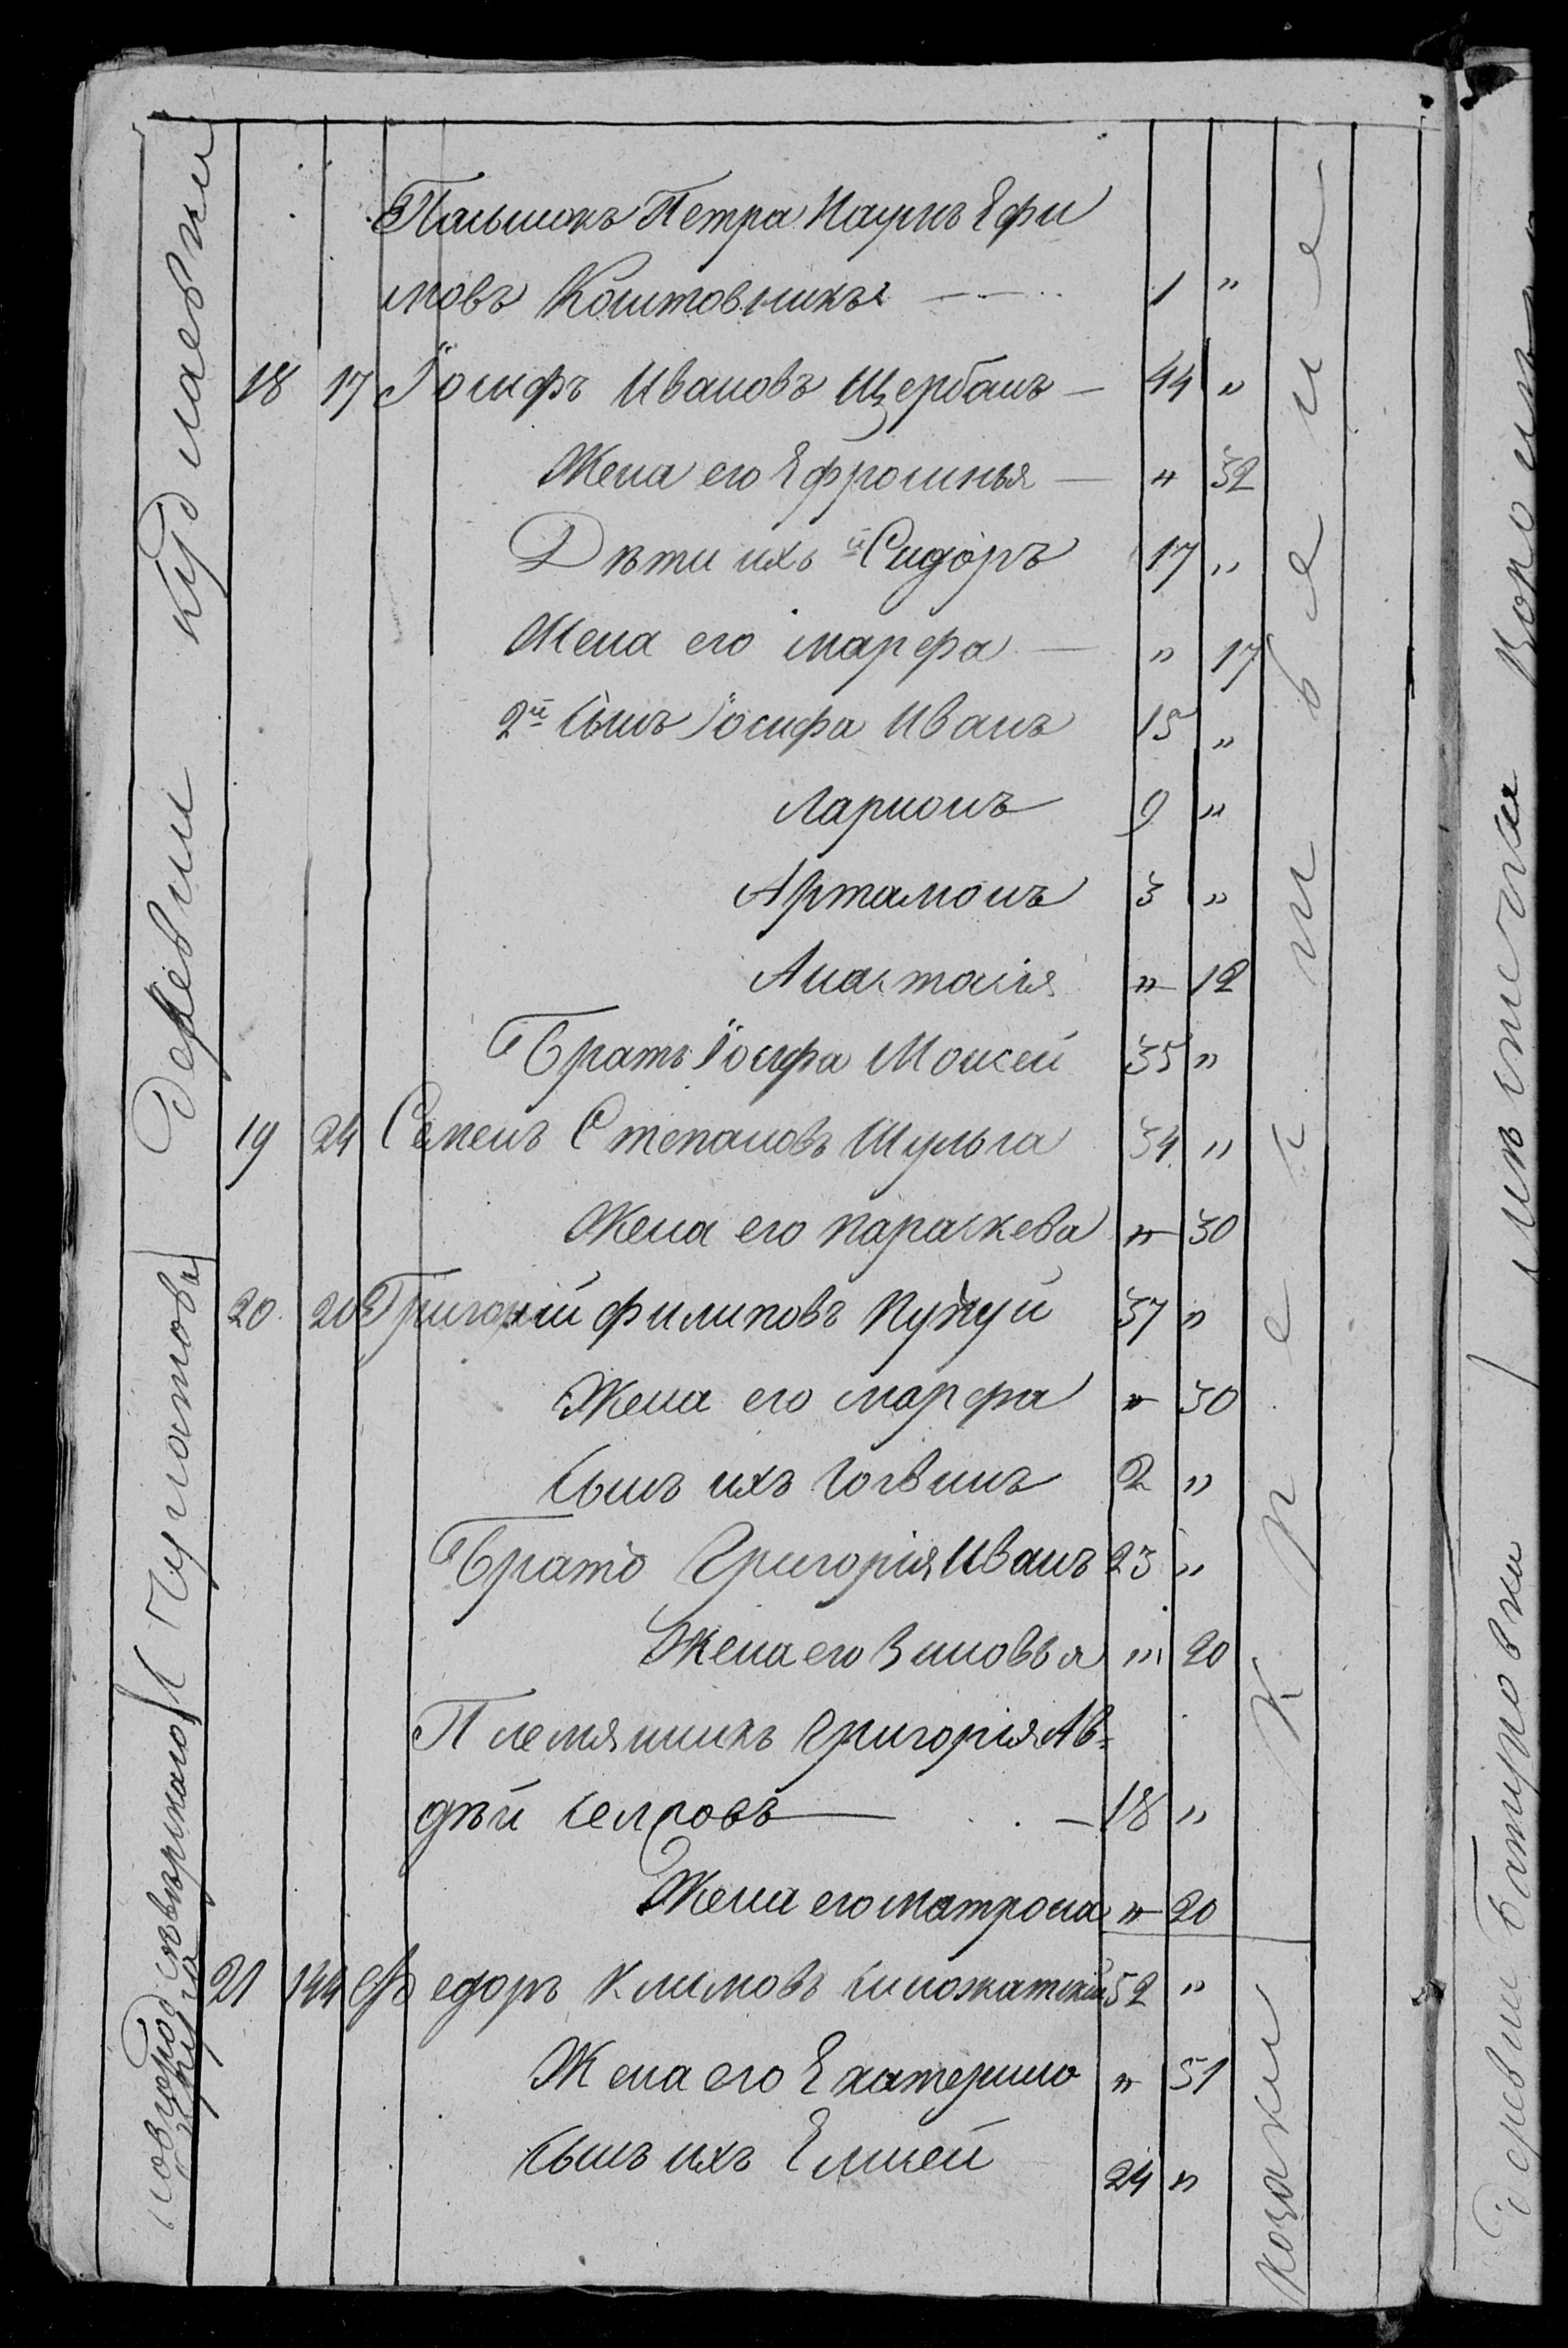 Пасынокъ Петра Наумъ Ефи
мовъ Коштовникъ — 1 "
18 17 Іосифъ Ивановъ Щербань — 44 "
Жена его Ефросинья — " 32
Дѣти ихъ Сидоръ 17 "
Жена его Марфа — " 17
2й Сынъ Іосифа Иванъ 15 "
Ларионъ 9 "
Артамонъ 3 "
Анастасія " 12
Братъ Іосифа Моисей 35 "
19 24 Семенъ Степановъ Шульга 34 "
Жена его Параскева " 30
20 20 Григорій Филиповъ 37 "
Жена его Марфа " 30
Сынъ ихъ Логвинъ 2 "
Братъ Григорія Иванъ 23 "
Жена его Зиновья " 20
Племянникъ Григорія Ав-
дѣй — 18 "
Жена его Матрона " 20
21 144 Федоръ Климовъ 52 "
Жена его Екатерина " 51
Сынъ их Елисей 24 "
Деревни Кудлаевки
Новгородсѣверскаго
Крестьяне
Козаки
Деревни Батуровки
мѣстечка